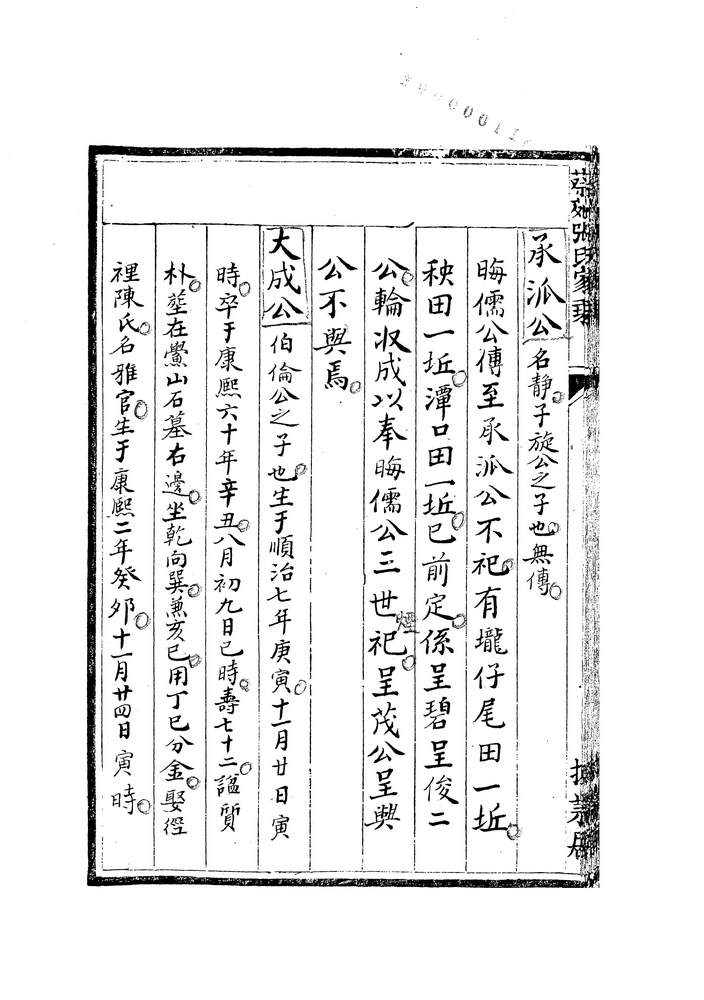 承派公名靜子旋公之子也無傳
晦儒公傳至承派公不祀有壠仔尾田一坵
秧田一坵潭口田一坵已前定係呈碧呈俊二
公輪收成以奉晦儒公三世祀煙呈茂公呈興
公不與焉
大成公伯倫公之子也生于順治七年庚寅十一月廿日寅
時卒于康熙六十年辛丑八月初九日巳時壽七十二諡質
朴塟在鸒山石墓右邊坐乾向巽兼亥巳用丁巳分金娶徑
裡陳氏名雅官生于康熙二年癸夘十一月廿四日寅時
張氏家